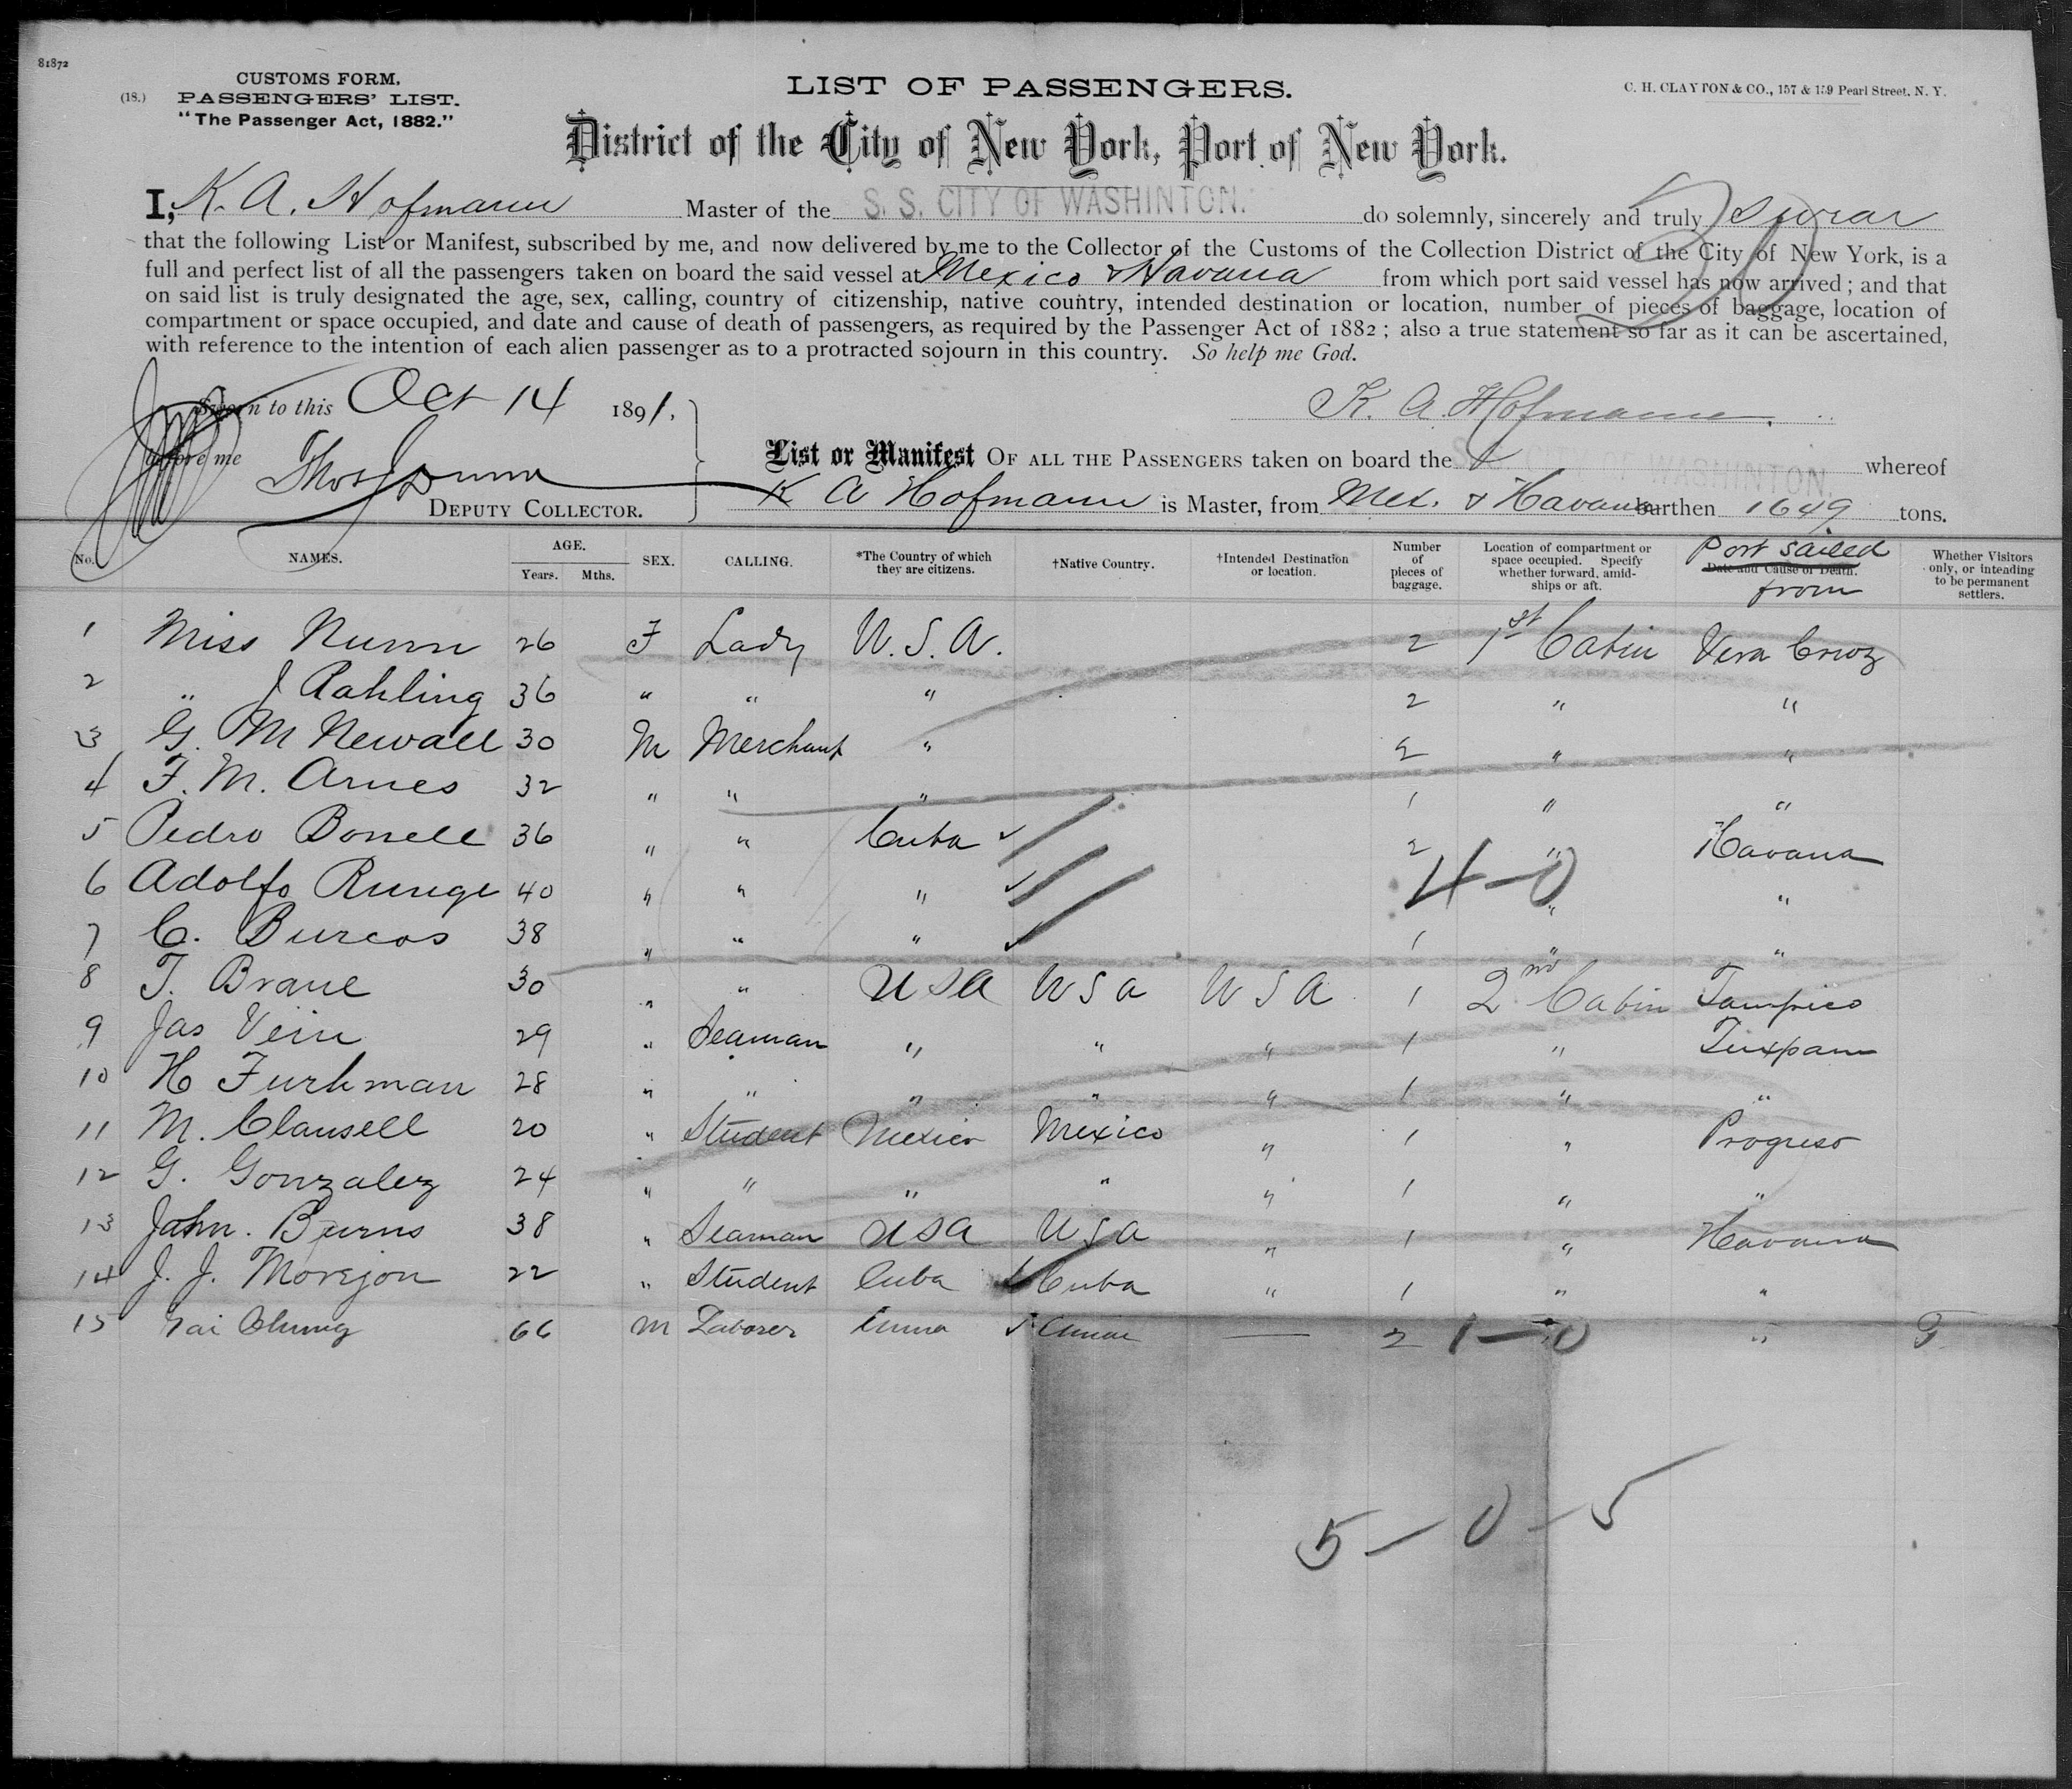 81872
CUSTOMS FORM.
(18.) PASSENGERS' LIST.
"The Passenger Act, 1882."
LIST OF PASSENGERS.
C. H. CLAYTON & CO., 157 & 159 Pearl Street, N. Y.
District of the City of New York, Port of New York.
I, K. A. Hofmann Master of the S. S. CITY OF WASHINTON. do solemnly, sincerely and truly swear
that the following List or Manifest, subscribed by me, and now delivered by me to the Collector of the Customs of the Collection District of the City of New York, is a
full and perfect list of all the passengers taken on board the said vessel at Mexico & Havana from which port said vessel has now arrived; and that
on said list is truly designated the age, sex, calling, country of citizenship, native country, intended destination or location, number of pieces of baggage, location of
compartment or space occupied, and date and cause of death of passengers, as required by the Passenger Act of 1882; also a true statement so far as it can be ascertained,
with reference to the intention of each alien passenger as to a protracted sojourn in this country. So help me God.
Sworn to this Oct 14 1891.
K. A. Hofmann.
before me Thos
DEPUTY COLLECTOR.
List or Manifest OF ALL THE PASSENGERS taken on board the S. S. CITY OF WASHINTON. whereof
K A Hofmann is Master, from Mex. & Havana burthen 1649 tons.
No. NAMES. AGE. Years. Mths. SEX. CALLING. *The Country of which they are citizens. †Native Country. †Intended Destination or location. Number of pieces of baggage. Location of compartment or space occupied. Specify whether forward, amidships or aft. Date and Cause of Death. Port sailed from Whether Visitors only, or intending to be permanent settlers.
1 Miss Nunn 26 F Lady U.S.A. 2 1st Cabin Vera Cruz
2 " J Rahling 36 " " " 2 " "
3 G. M Newall 30 M Merchant " 2 " "
4 F. M. Arnes 32 " " " 1 " "
5 Pedro Bonell 36 " " Cuba 2 " Havana
6 Adolfo Runge 40 " " " 4-0 " "
7 C. Burcos 38 " " " 1 " "
8 T. Brane 30 " " USA USA USA 1 2nd Cabin Tampico
9 Jas Vein 29 " Seaman " " " 1 " Tuxpam
10 H Furhman 28 " " " " " 1 " "
11 M. Clausell 20 " Student Mexico Mexico " 1 " Progreso
12 G. Gonzalez 24 " " " " " 1 " "
13 John. Burns 38 " Seaman USA USA " 1 " Havana
14 J. J. Morejon 22 " Student Cuba Cuba " 1 " "
15 Chung 66 M Laborer China China — 2 1-0 " T
5-0-5